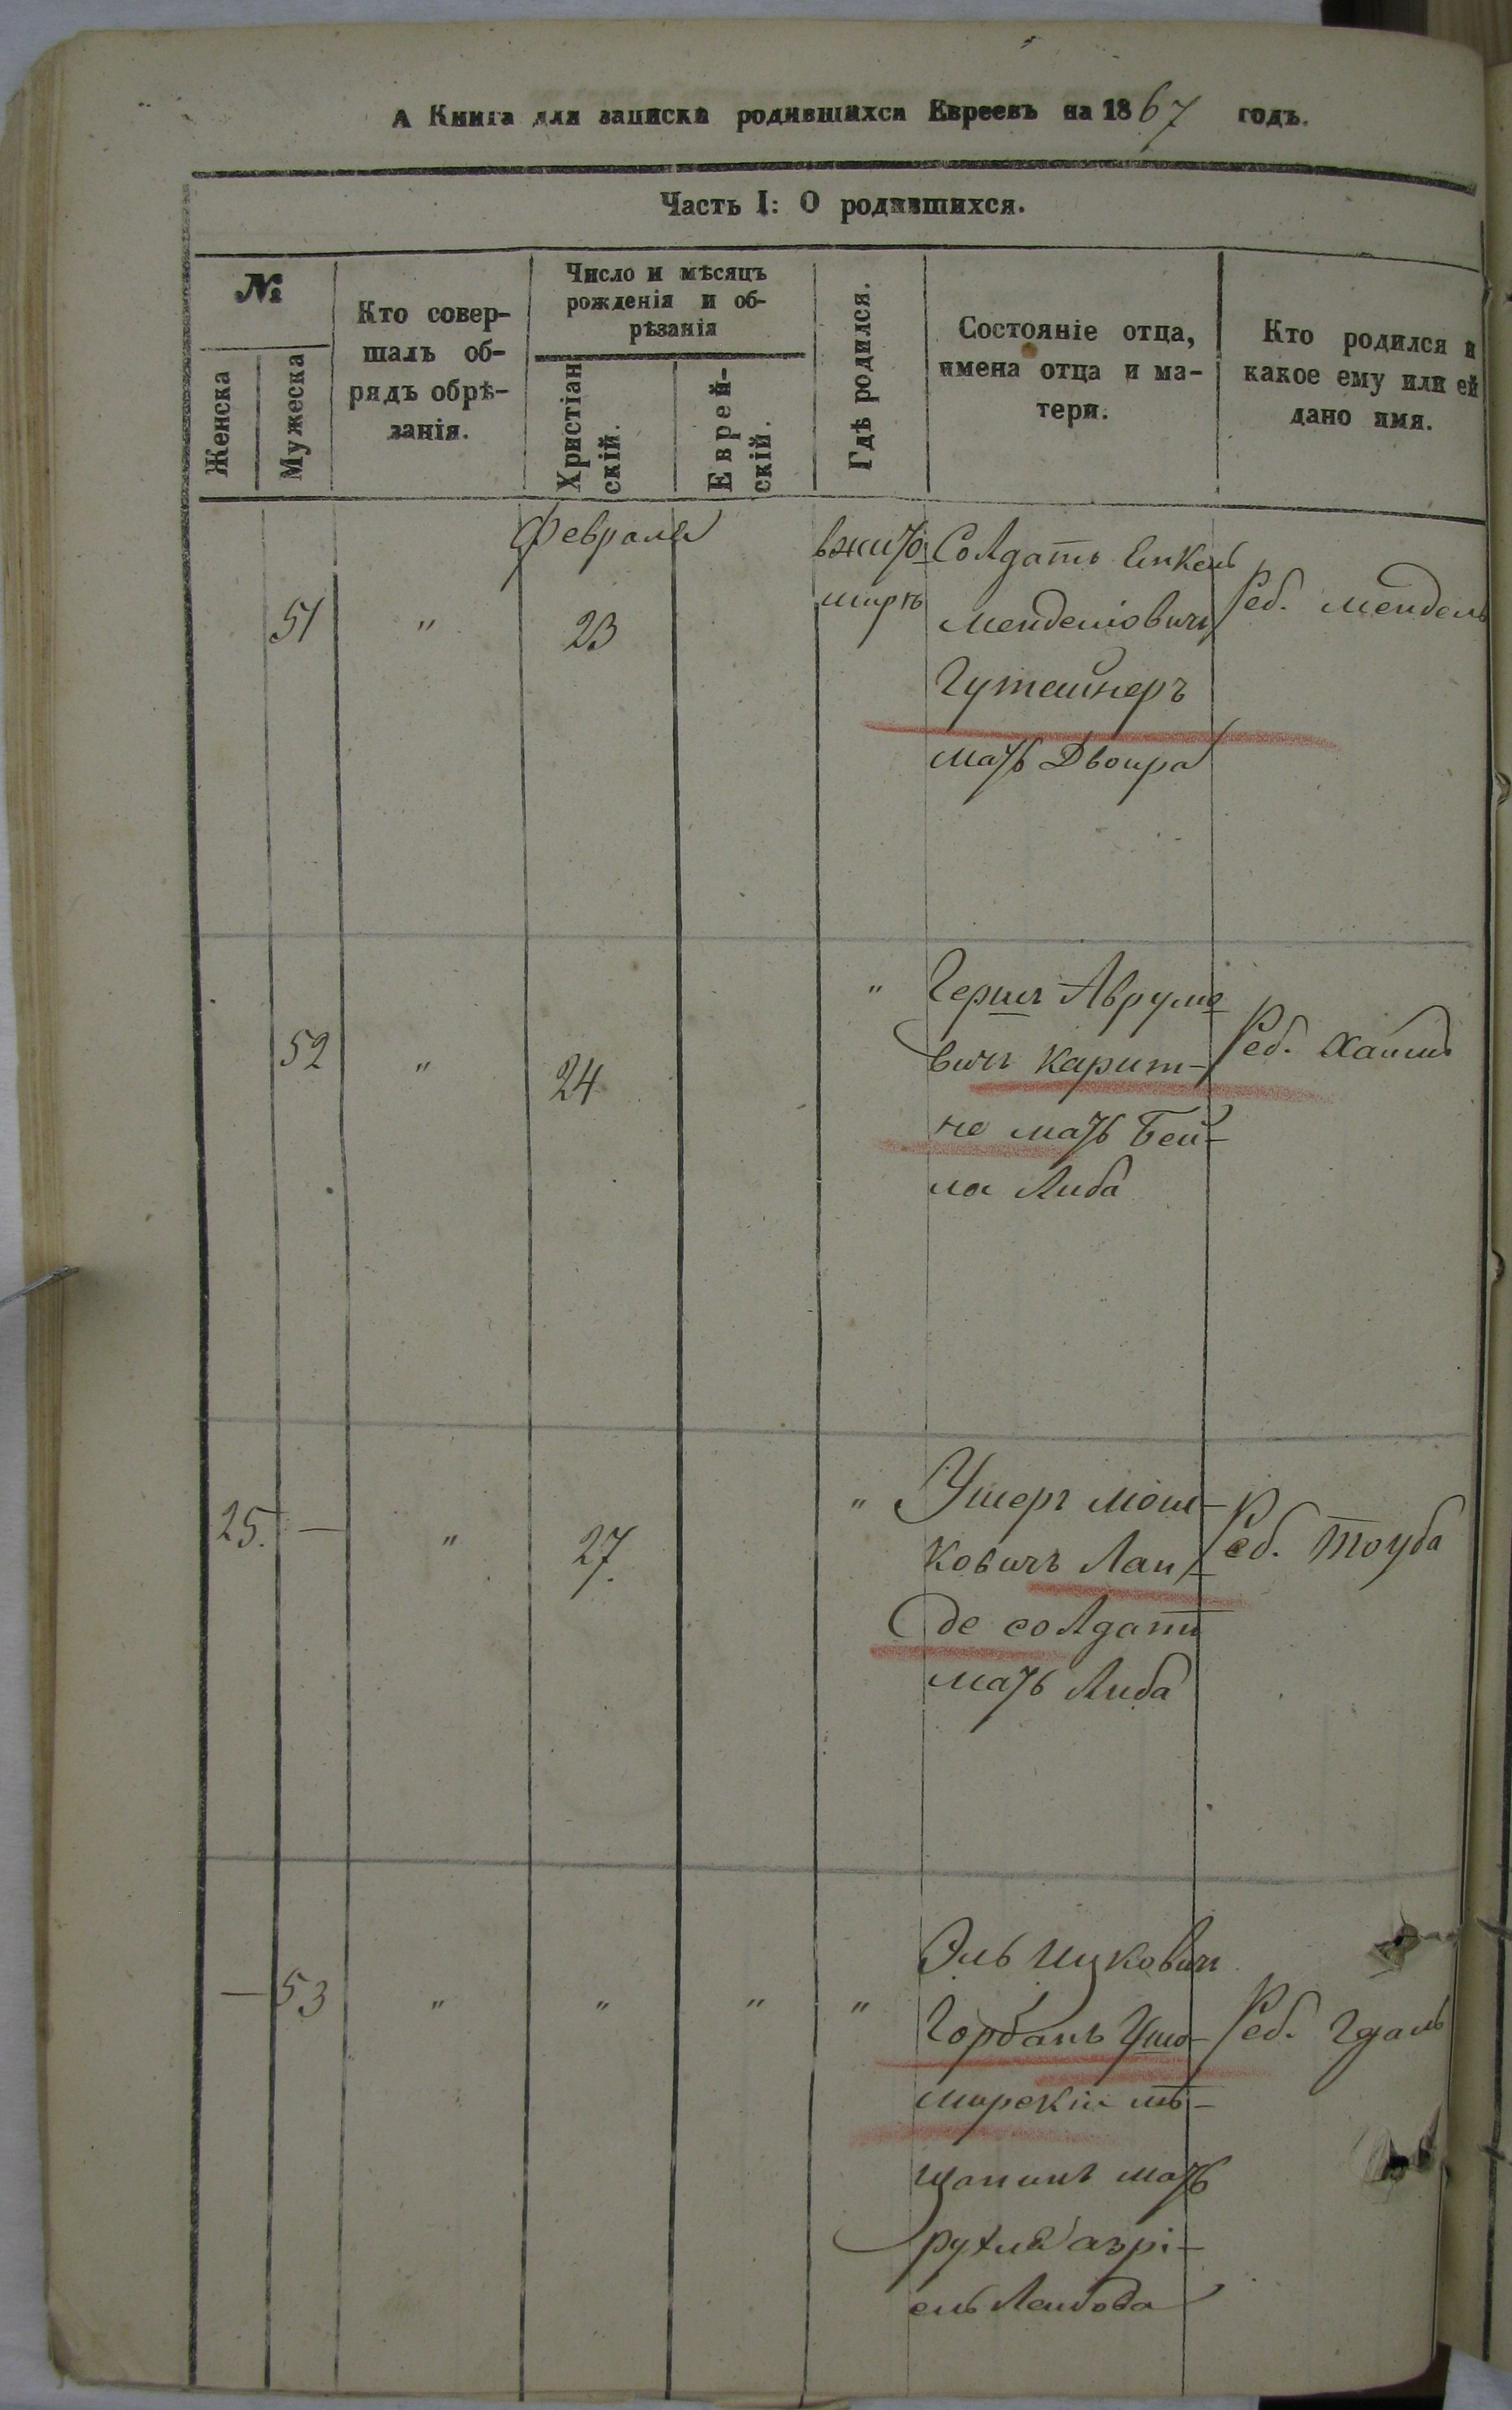 А Книга для записки родившихся Евреевъ на 1867 годъ.
Часть I: О родившихся.
№
Женска
Мужеска
Кто совер-
шалъ об-
рядъ обрѣ-
занія.
Число и мѣсяцъ
рожденія и об-
рѣзанія
Христіан
скій.
Еврей-
скій.
Гдѣ родился.
Состояніе отца,
имена отца и ма-
тери.
Кто родился и
какое ему или ей
дано имя.
февраля
51 " 23
вжито
мирѣ
Солдатъ Енкель
Менделіовичъ
Гутейнеръ
мать Двоира
Реб. Мендель
52 " 24 "
Гершъ Аврумо
вичъ Карит-
че мать Бей-
ла Либа
Реб. Хаимъ
25. — " 27. "
Ушеръ Мош-
ковичъ Лан-
де солдатъ
мать Либа
Реб. Тоуба
— 53 " " " "
Эль Ицковичъ
Горбанъ Ушо-
мирскій мѣ-
щанинъ мать
Рухля Азрі-
ель Лейбова
Реб. Гдаль